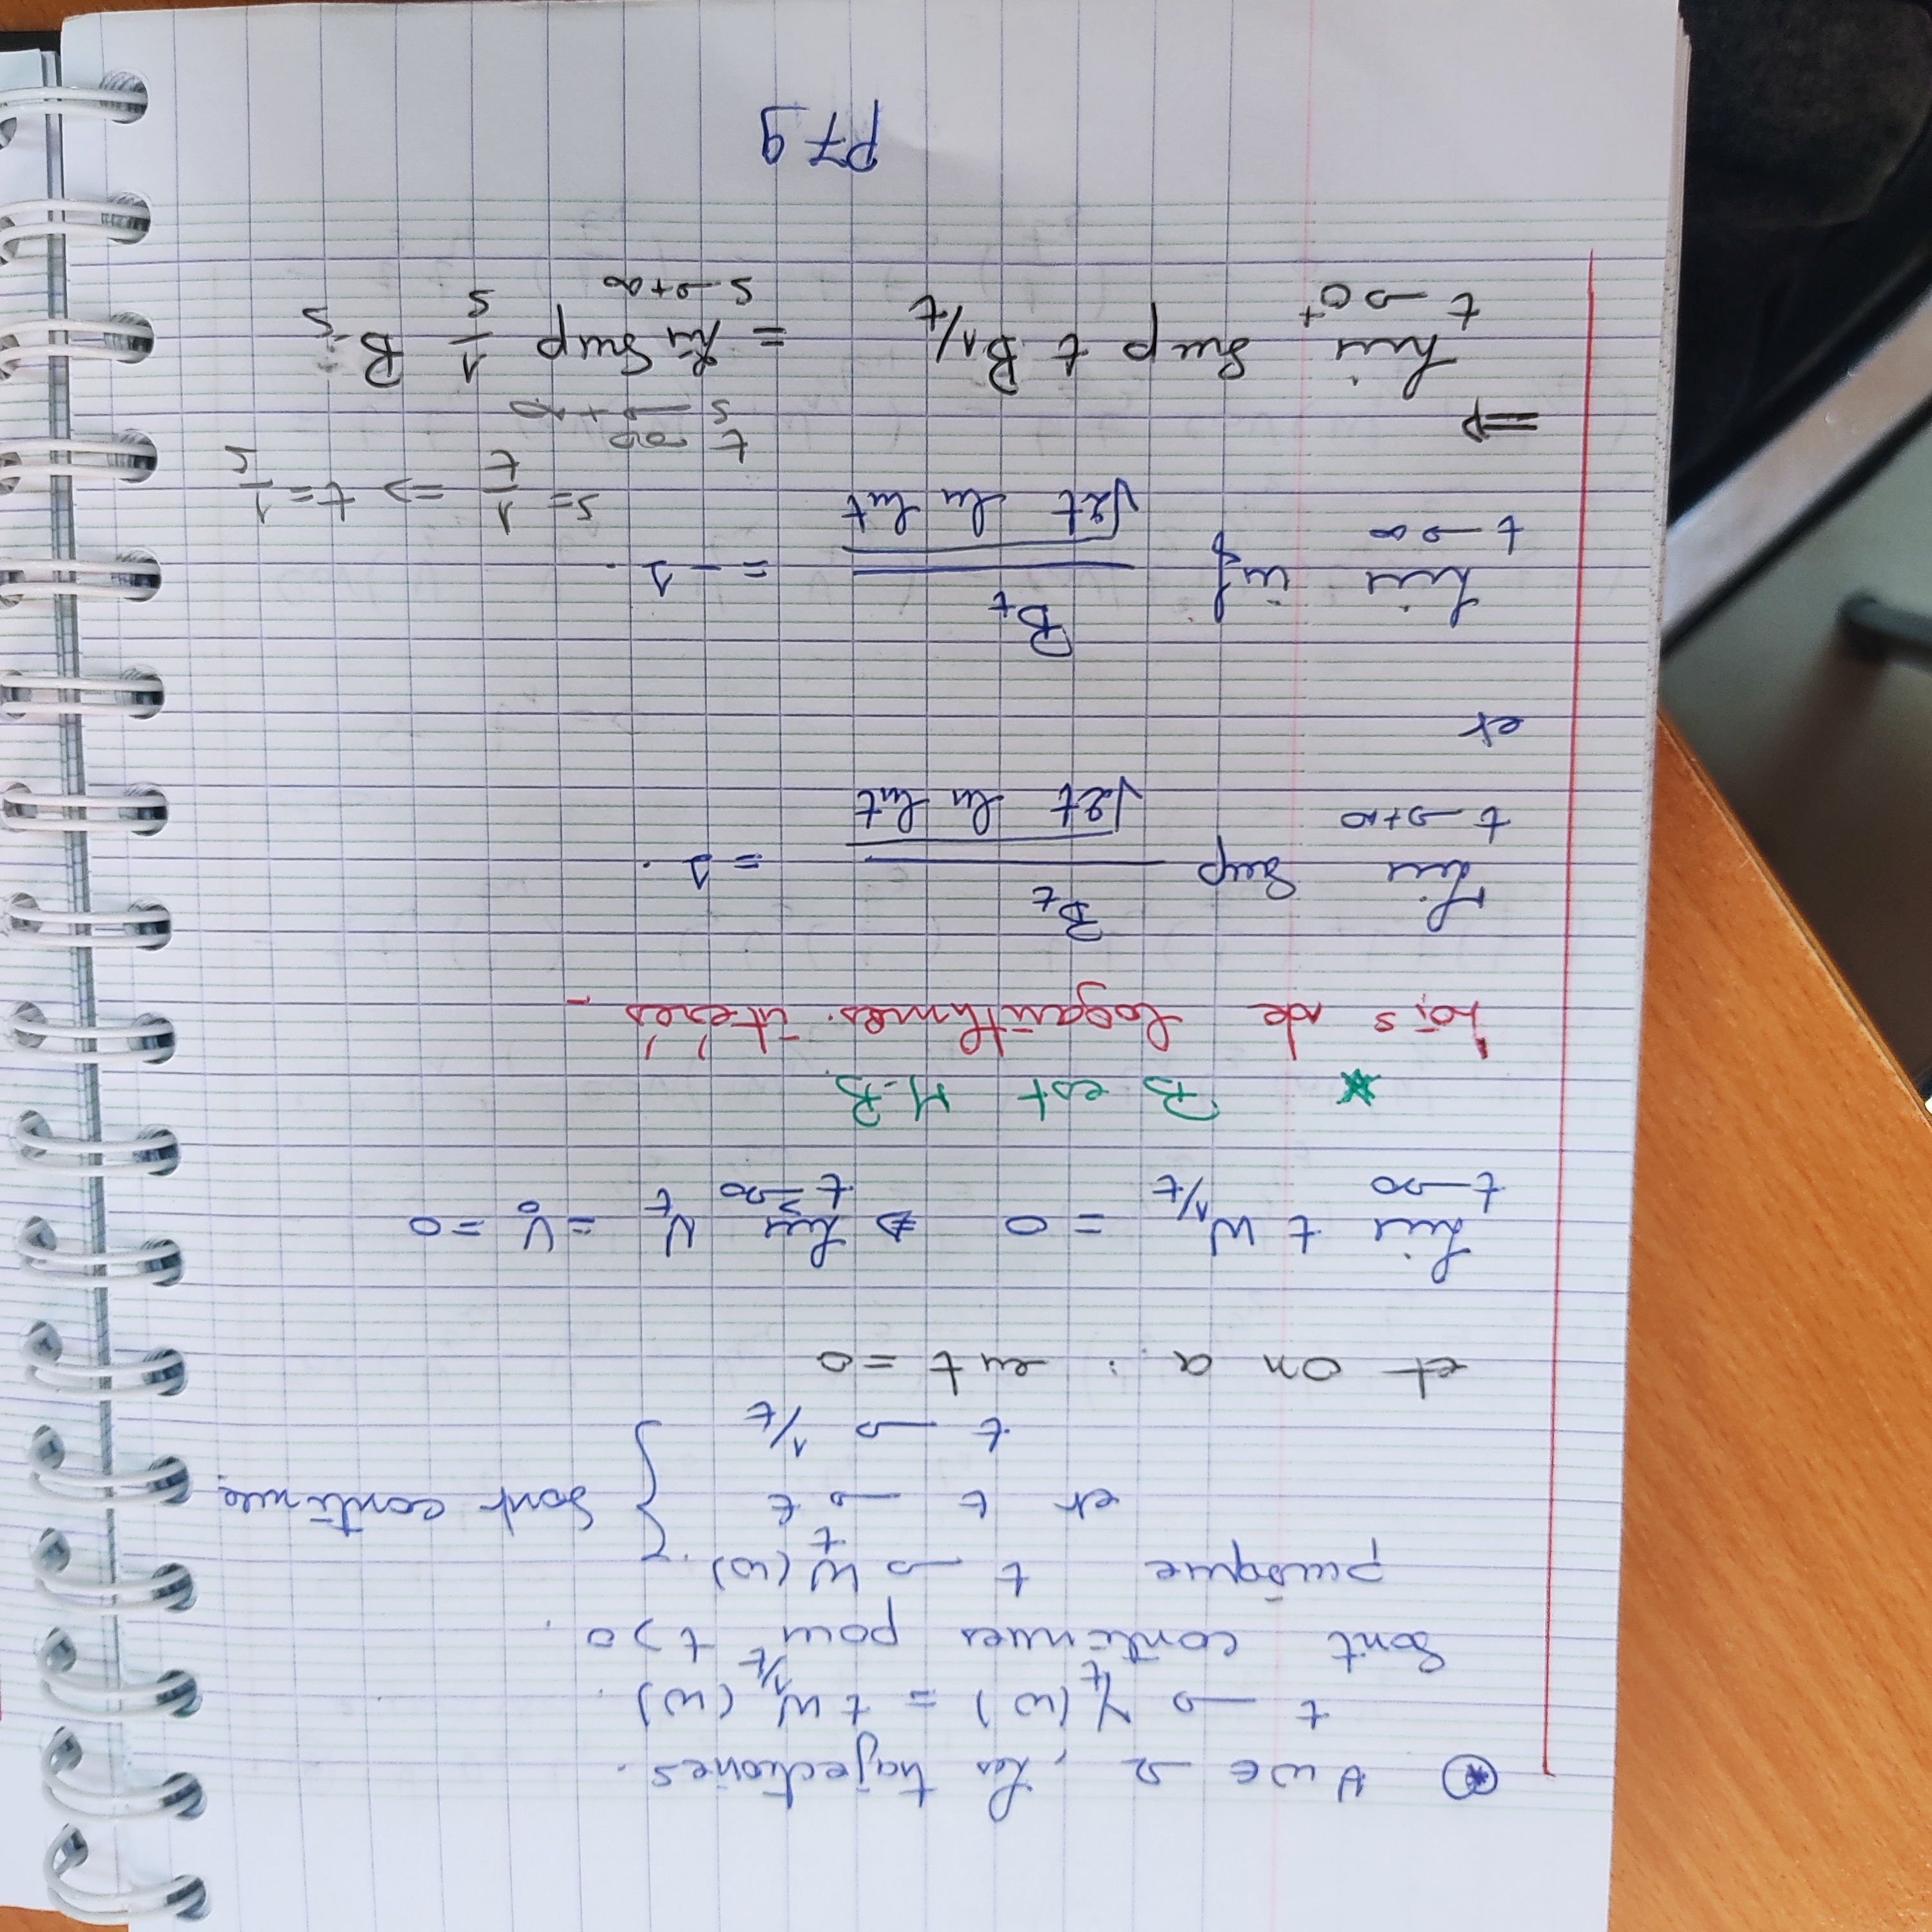 ⊛ ∀ w ∈ Ω, Les trajectoires.
t → Y_t (ω) = t W_{1/t} (ω).
Sont continues pour t > 0.
puisque t → W_t (ω).
et t → t } Sont continues
t → 1/t
et on a : en t = 0
Lim_{t→0} t W_{1/t} = 0 ⇒ Lim_{t→0} V_t = V_0 = 0
* B est M.B.
Lois de logarithmes itérés.
Lim Sup_{t→+∞} B_t / √(2t ln ln t) = 1.
et
Lim inf_{t→∞} B_t / √(2t ln ln t) = -1.
s = 1/t ⇒ t = 1/s
t → 0
⇒ s → +∞
Lim Sup_{t→0⁺} t B_{1/t} = Lim Sup_{s→+∞} 1/s B_s
P79